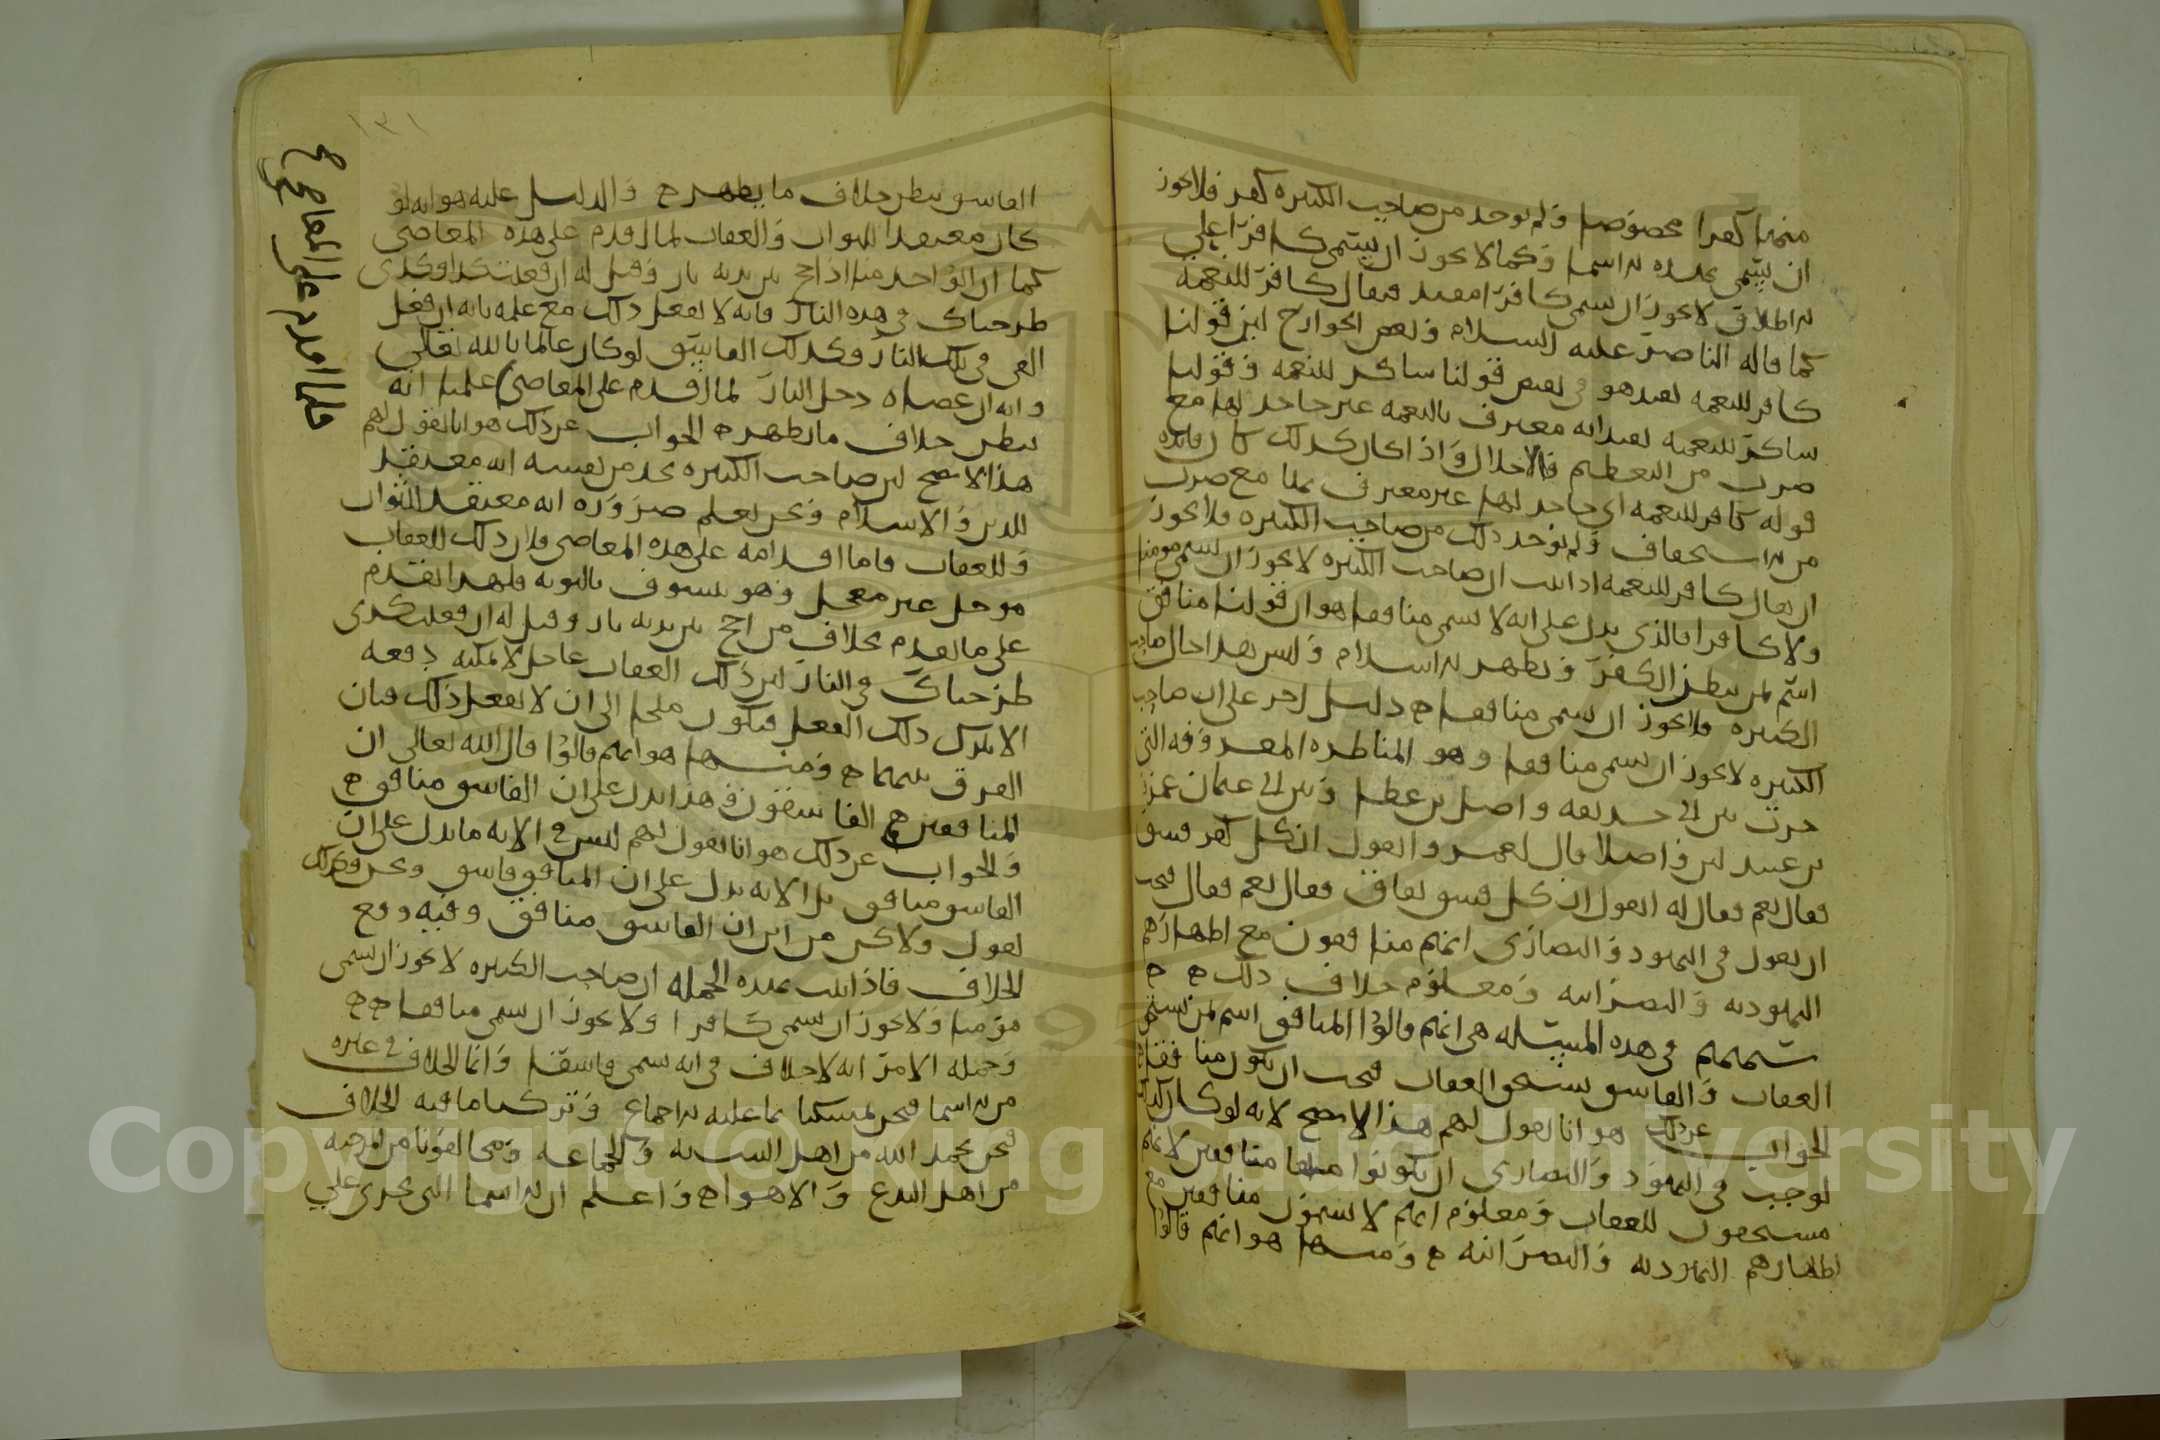 منهما كفرا مخصوصا ولم يوجد من صاحب الكبيرة كفر فلا يجوز
ان يتسمى بهذه الاسما وكما لا يجوز ان يسمى كافرا على
الاطلاق لا يجوز ان يسمى كافرا مقيد فيقال كافر للنعمة
كما قاله الناصر عليه السلام وبعض الخوارج لان قولنا
كافر للنعمه يفيد هو في نقيض قولنا شاكر للنعمه وقولنا
شاكر للنعمه يفيد انه معترف بالنعمه غير جاحد لها مع
ضرب من التعظيم والاجلال واذا كان كذلك كان فائده
قوله كافر للنعمه اي جاحد لها غير معترف بها مع ضرب
من الاستخفاف ولم يوجد ذلك من صاحب الكبيره فلا يجوز
ان يقال كافر للنعمه اذا ثبت ان صاحب الكبيره لا يجوز ان يسمى مومنا
ولا كافرا فالذي يدل على انه لا يسمى منافقا هو ان قولنا منافق
اسم لمن يبطن الكفر ويظهر الاسلام وليس هذا حال صاحب
الكبيره فلا يجوز ان يسمى منافقا دليل اخر على ان صاحب
الكبيره لا يجوز ان يسمى منافقا وهو المناظره المعروفه التي
جرت بين ابي حذيفه واصل بن عطا وبين ابي عثمان عمرو
بن عبيد لان واصلا قال لعمرو اتقول ان كل كفر فسق
فقال نعم فقال له اتقول ان كل فسق نفاق فقال نعم فقال فيجب
ان يقول في اليهود والنصارى انهم منافقون مع اظهارهم
اليهوديه والنصرانيه ومعلوم خلاف ذلك
شبههم في هذه المسئله هي انهم قالوا المنافق اسم لمن يستحق
العقاب والفاسق يستحق العقاب فيجب ان يكون منافقا
الجواب عن ذلك هو انا نقول لهم هذا لا يصح لانه لو كان كذلك
لوجب في اليهود والنصارى ان يكونوا منافقين لانهم
مستحقون للعقاب ومعلوم انهم لا يسمون منافقين مع
اظهارهم اليهوديه والنصرانيه ومنها هو انهم قالوا
١٣١
الفاسق يبطن خلاف ما يظهر والدليل عليه هو انه لو
كان معتقدا للثواب والعقاب لما اقدم على هذه المعاصي
كما ان الواحد منا اذا اجج بين يديه نار وقيل له ان فعلت كذا وكذى
طرحناك في هذه النار فانه لا يفعل ذلك مع علمه بانه ان فعل
القي في تلك النار وكذلك الفاسق لو كان عالما بالله تعالى
وانه ان عصاه دخل النار لما اقدم على المعاصي علمنا انه
يبطن خلاف ما يظهر الجواب عن ذلك هو انا نقول لهم
هذا لا يصح لان صاحب الكبيره يجد من نفسه انه معتقد
للدين والاسلام ونحن نعلم ضروره انه معتقد للثواب
وللعقاب فاما اقدامه على هذه المعاصي فلان ذلك للعقاب
موجل غير معجل وهو يسوف بالتوبه فلهذا تقدم
على ما تقدم بخلاف من اجج بين يديه نار وقيل له ان فعلت كذى
طرحناك في النار لان ذلك العقاب عاجل لا يمكنه دفعه
الا بترك ذلك الفعل فيكون ملجا الى ان لا يفعل ذلك فبان
الفرق بينهما ومنها هو انهم قالوا قال الله تعالى ان
المنافقين هم الفاسقون وهذا يدل على ان الفاسق منافق
والجواب عن ذلك هو انا نقول لهم ليس في الايه ما يدل على ان
الفاسق منافق بل الايه تدل على ان المنافق فاسق ونحن كذلك
نقول ولاكن من اين ان الفاسق منافق وفيه وقع
الخلاف فاذا ثبت بهذه الجمله ان صاحب الكبيره لا يجوز ان يسمى
مومنا ولا يجوز ان يسمى كافرا ولا يجوز ان يسمى منافقا
وجمله الامر انه لا خلاف في انه يسمى فاسقا وانما الخلاف في غيره
من الاسما فنحن تمسكنا بما عليه الاجماع وتركنا ما فيه الخلاف
فنحن بحمد الله من اهل السنه والجماعه ومخالفونا من المرجيه
من اهل البدع والاهوا واعلم ان الاسما التي تجرى على
فلما اقدم على المعاصي